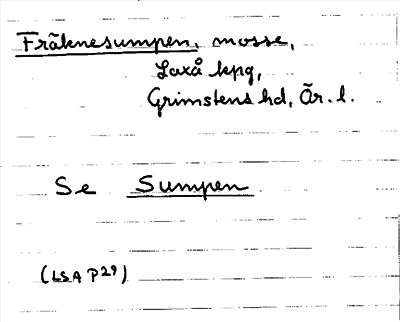 Fräknesumpen, mosse,
Laxå kpg,
Grimstens hd, Ör. l.
Se Sumpen
(LSA P29)